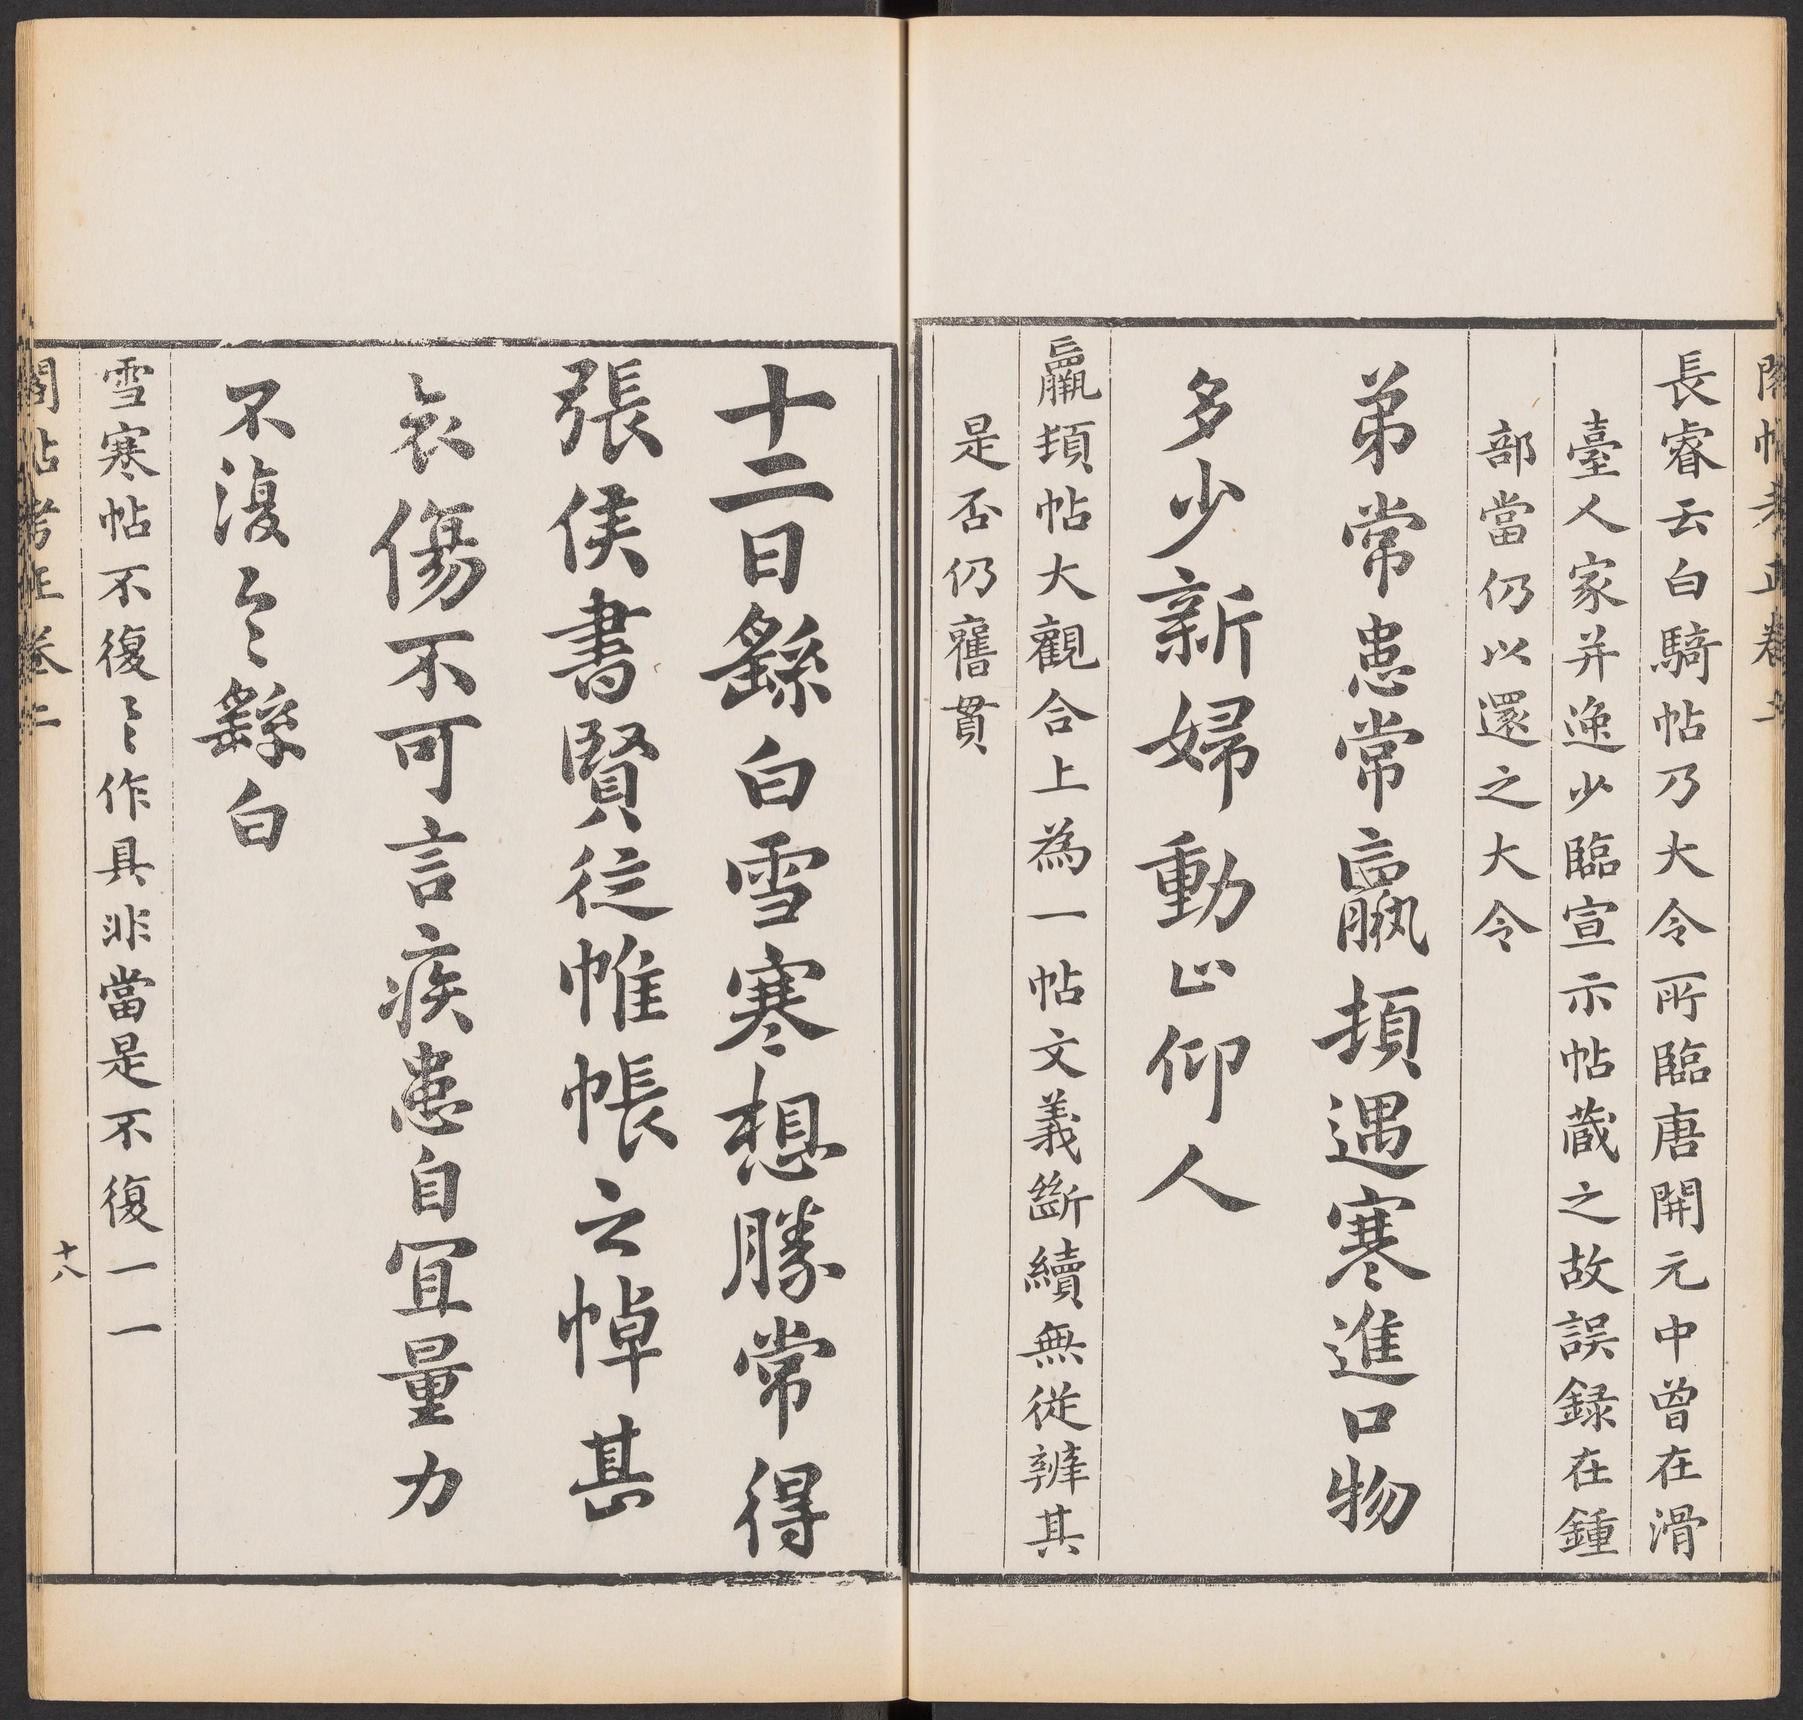 長睿云白騎帖乃大令所臨唐開元中曾在滑
臺人家并逸少臨宣示帖蔵之故誤録在鍾
部當仍以還之大令
弟常患常羸頓遇寒進口物
多少新婦動止仰人
羸頓帖大觀合上為一帖文義斷續無從辨其
是否仍舊貫
十二日繇白雪寒想勝常得
張侯書賢從帷帳之悼甚
哀傷不可言疾患自宜量力
不復〻繇白
雪寒帖不復〻作具非當是不復一一
閣帖考正卷二
十八